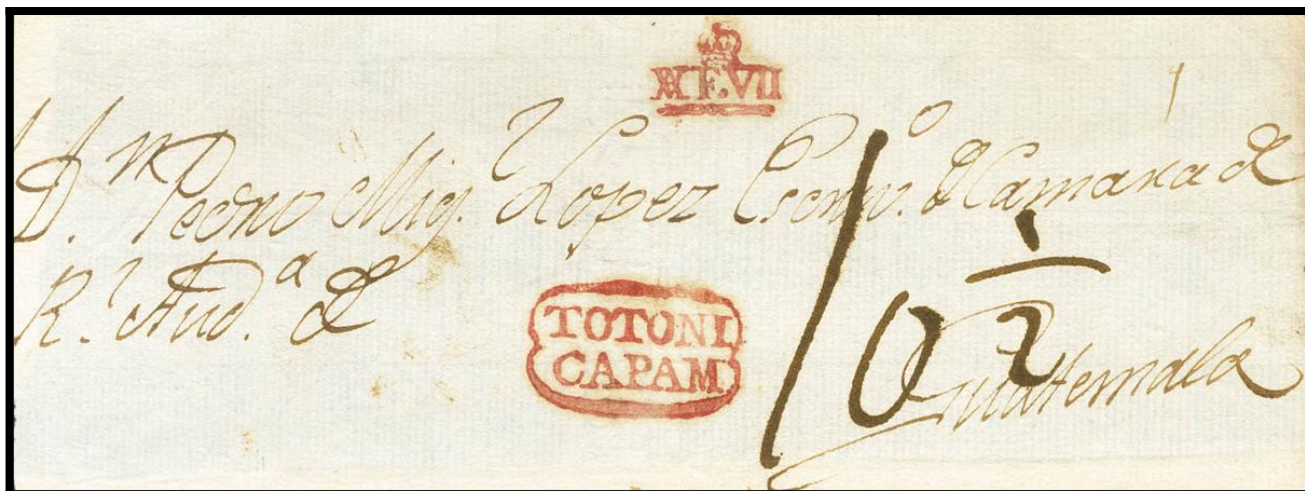 F.VII
D.n Pedro Mig.l Lopez Escriv.o d Camara d
R.l Aud.a d
10 1/2
TOTONI
CAPAM
Guatemala